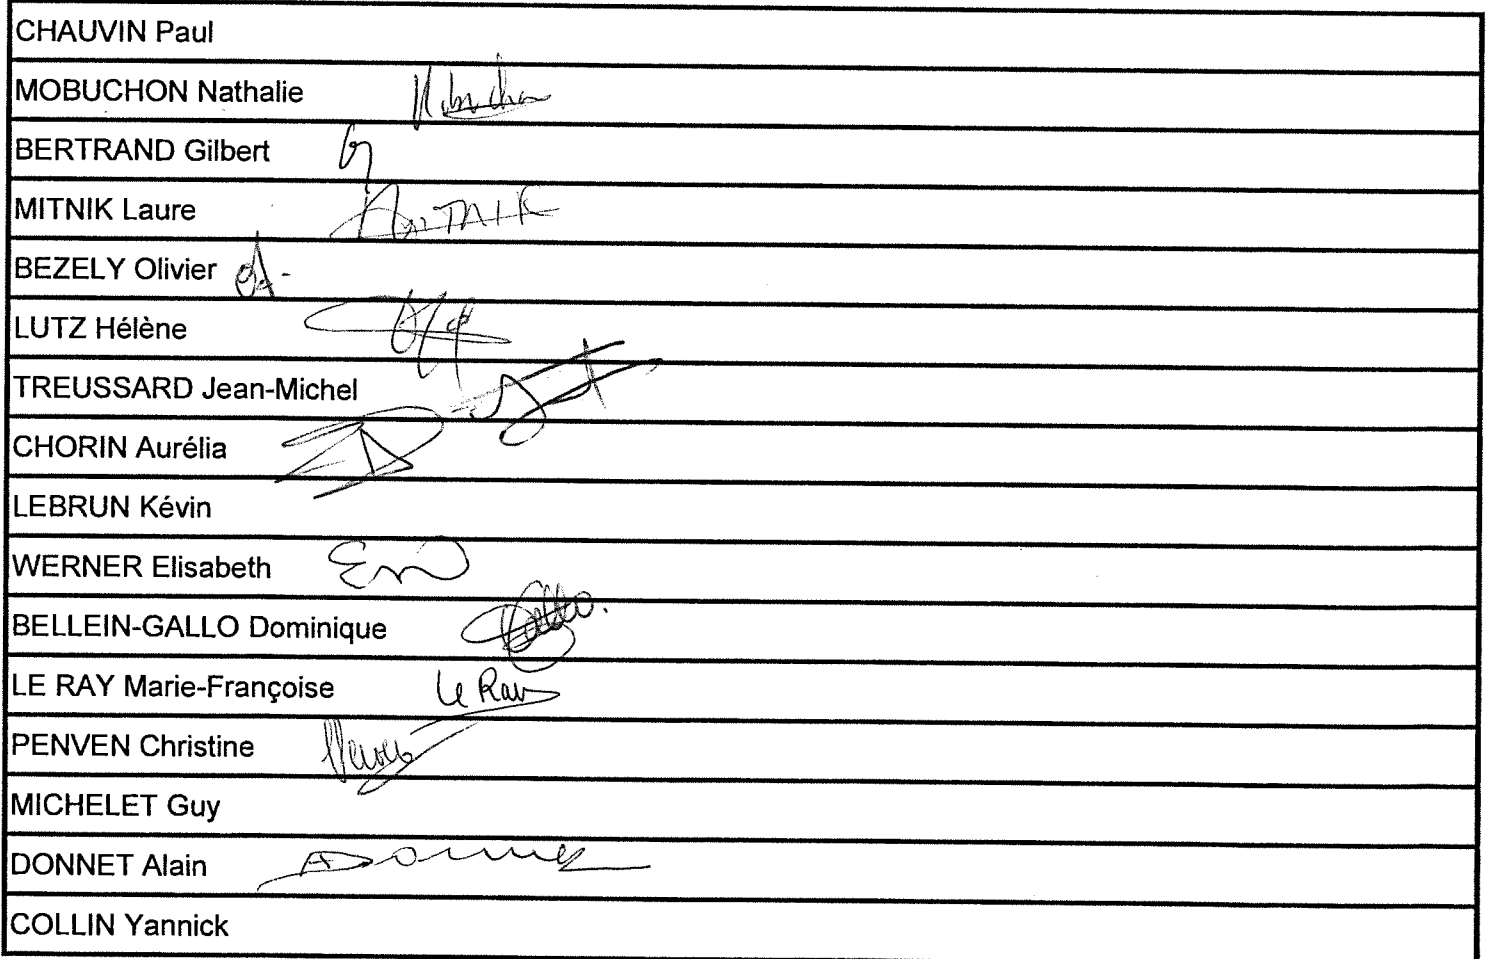 CHAUVIN Paul
MOBUCHON Nathalie
BERTRAND Gilbert
MITNIK Laure MITNIK
BEZELY Olivier
LUTZ Hélène
TREUSSARD Jean-Michel
CHORIN Aurélia
LEBRUN Kévin
WERNER Elisabeth
BELLEIN-GALLO Dominique
LE RAY Marie-Françoise Le Ray
PENVEN Christine
MICHELET Guy
DONNET Alain ADonnet
COLLIN Yannick